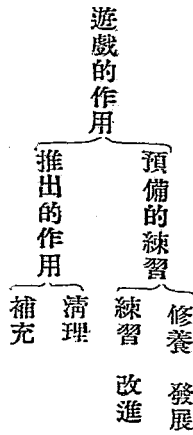 遊戲的作用
預備的練習
修養 發展
練習 改進
推出的作用
清理
補充